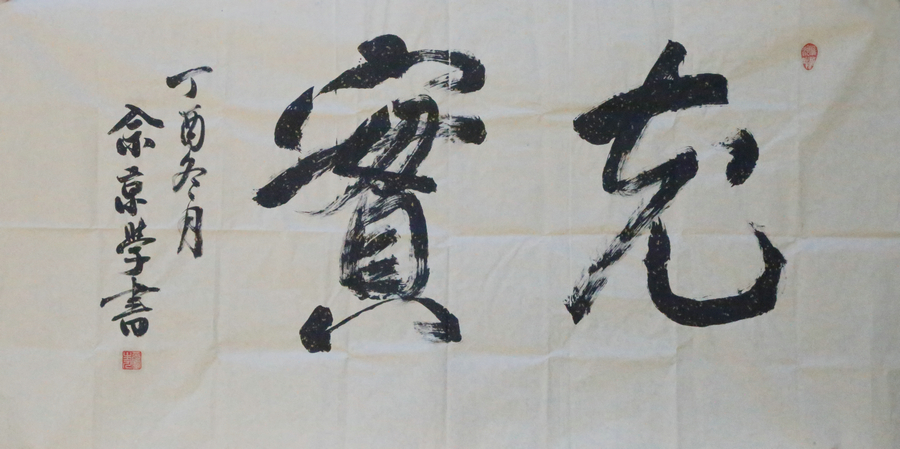 充實
丁酉冬月
余京學書